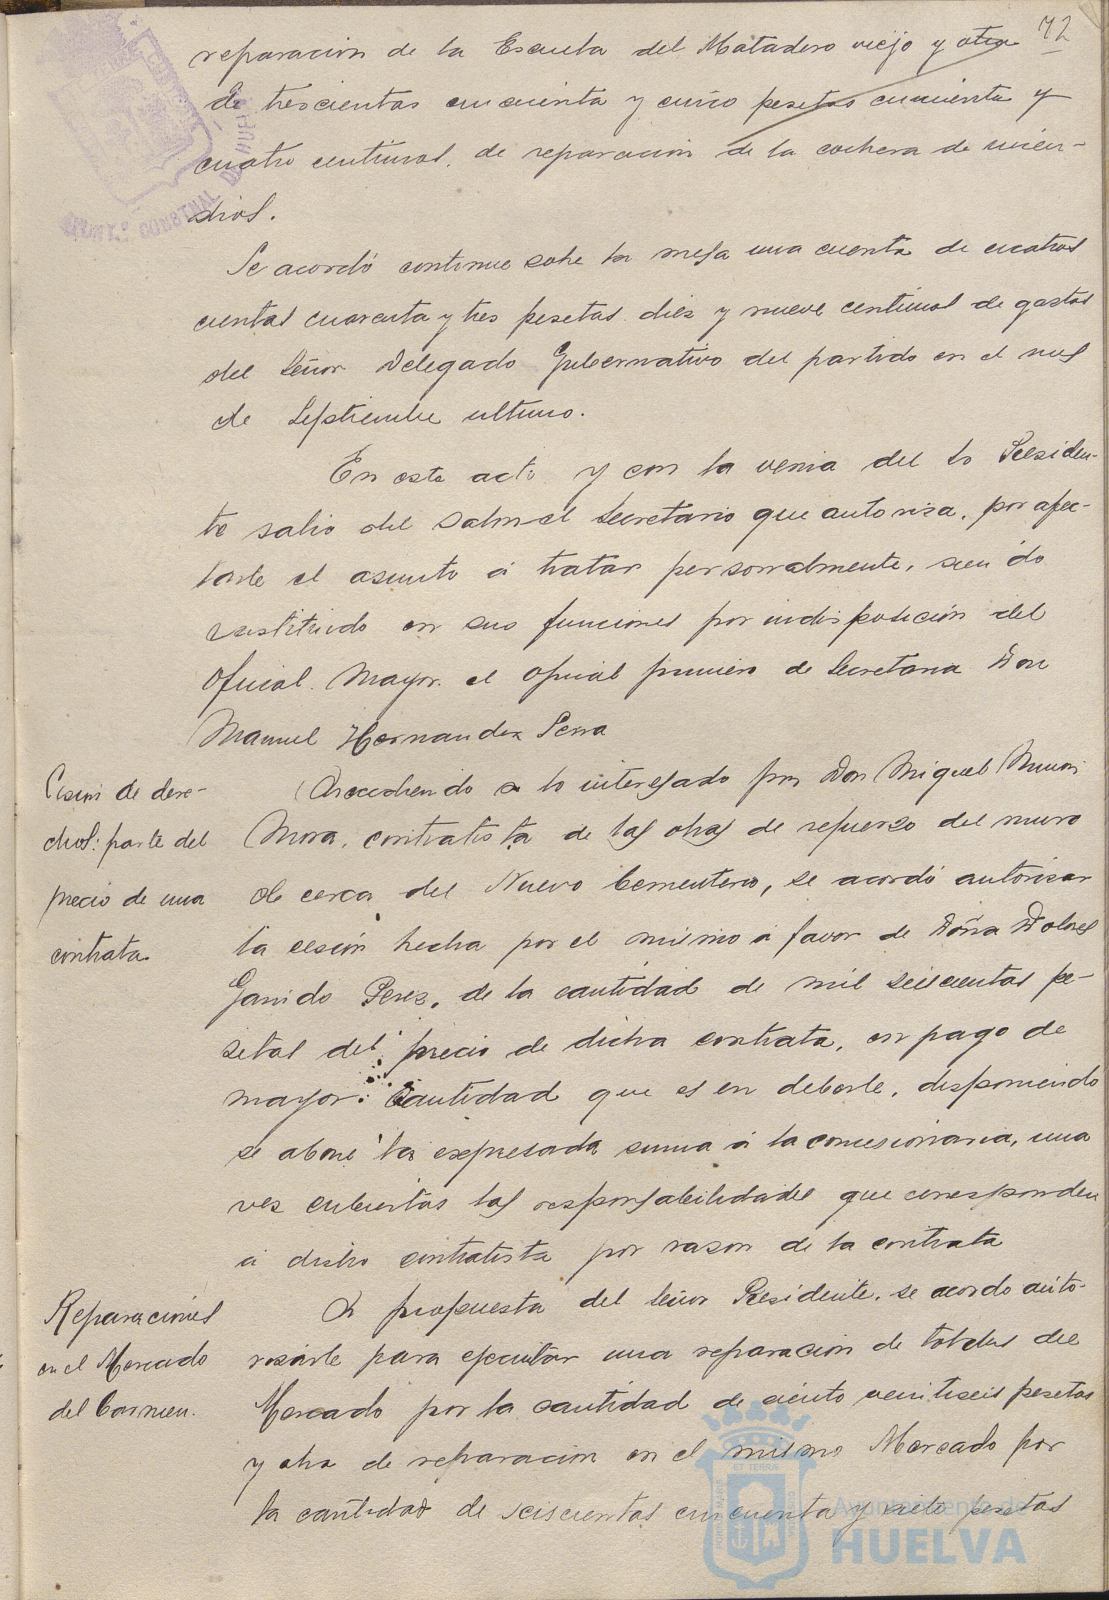 72
reparacion de la Escuela del Matadero viejo y otra
de trescientas cincuenta y cinco pesetas cincuenta y
cuatro centimos, de reparacion de la cochera de incen-
dios.
Se acordó continue sobre la mesa una cuenta de cuatros
cientas cuarenta y tres pesetas diez y nueve centimos de gastos
del Señor Delegado Gubernativo del partido en el mes
de Septiembre ultimo.
En este acto y con la venia del Sr Presiden-
te salio del Salon el Secretario que autoriza, por afec-
tarle el asunto á tratar personalmente, siendo
sustituido en sus funciones por indisposición del
Oficial Mayor el oficial primero de Secretaria Don
Manuel Hernandez Serra
Cesion de dere-
chos: parte del
precio de una
contrata
Accediendo a lo interesado por Don Miguel
Mora, contratista de las obras de refuerzo del muro
de cerca del Nuevo Cementerio, se acordó autorizar
la cesion hecha por el mismo á favor de Doña Dolores
Garrido Perez, de la cantidad de mil seiscientas pe-
setas del precio de dicha contrata, en pago de
mayor cantidad que es en deberle, disponiendo
se abone la expresada suma á la concesionaria, una
vez cubiertas las responsabilidades que corresponden
á dicho contratista por razon de la contrata
Reparaciones
en el Mercado
del Carmen.
A propuesta del Señor Presidente, se acordo auto-
rizarle para ejecutar una reparacion de toldos del
Mercado por la cantidad de ciento veintiseis pesetas
y otra de reparacion en el mismo Mercado por
la cantidad de seiscientas cincuenta y siete pesetas
Ayuntamiento de
HUELVA